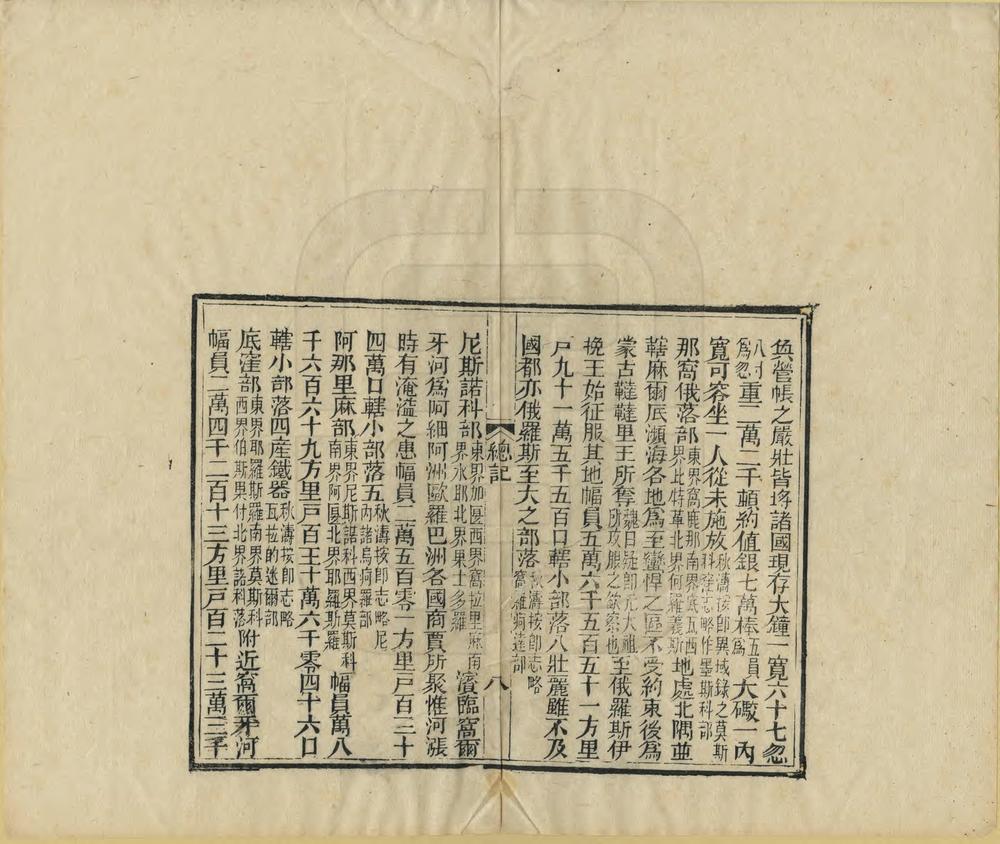 與營帳之嚴壯皆埒諸國現存大鐘一寬六十七忽
八吋為忽重二萬二千頓約值銀七萬棒五員為大礮一內
寬可容坐一人從未施放秋濤按即異域錄之莫斯科窪志略作墨斯科部
那窩俄落部東界窩鹿那南界底瓦西界比特革北界何羅義斯地處北隅並
轄麻爾底瀕海各地為至蠻悍之區不受約束後為
蒙古韃韃里王所奪魏曰疑即元太祖所攻服之欽察也至俄羅斯伊
挽王始征服其地幅員五萬六千五百五十一方里
戶九十一萬五千五百口轄小部落八壯麗雖不及
國都亦俄羅斯至大之部落秋濤按即志略窩羅疴達部
總記
八
尼斯諾科部東界加匽西界窩拉里麻南界水耶北界果士多羅濱臨窩爾
牙河為阿細阿洲歐羅巴洲各國商賈所聚惟河漲
時有淹溢之患幅員二萬五百零一方里戶百三十
四萬口轄小部落五秋濤按即志略尼內諸烏疴羅部
阿那里麻部東界尼斯諾科西界莫斯科南界阿匽北界耶羅斯羅幅員萬八
千六百六十九方里戶百三十萬六千零四十六口
轄小部落四產鐵器秋濤按即志略瓦拉的迷爾部
底窪部東界耶羅斯羅南界莫斯科西界伯斯果付北界諾科落附近窩爾牙河
幅員二萬四千二百十三方里戶百二十三萬三千